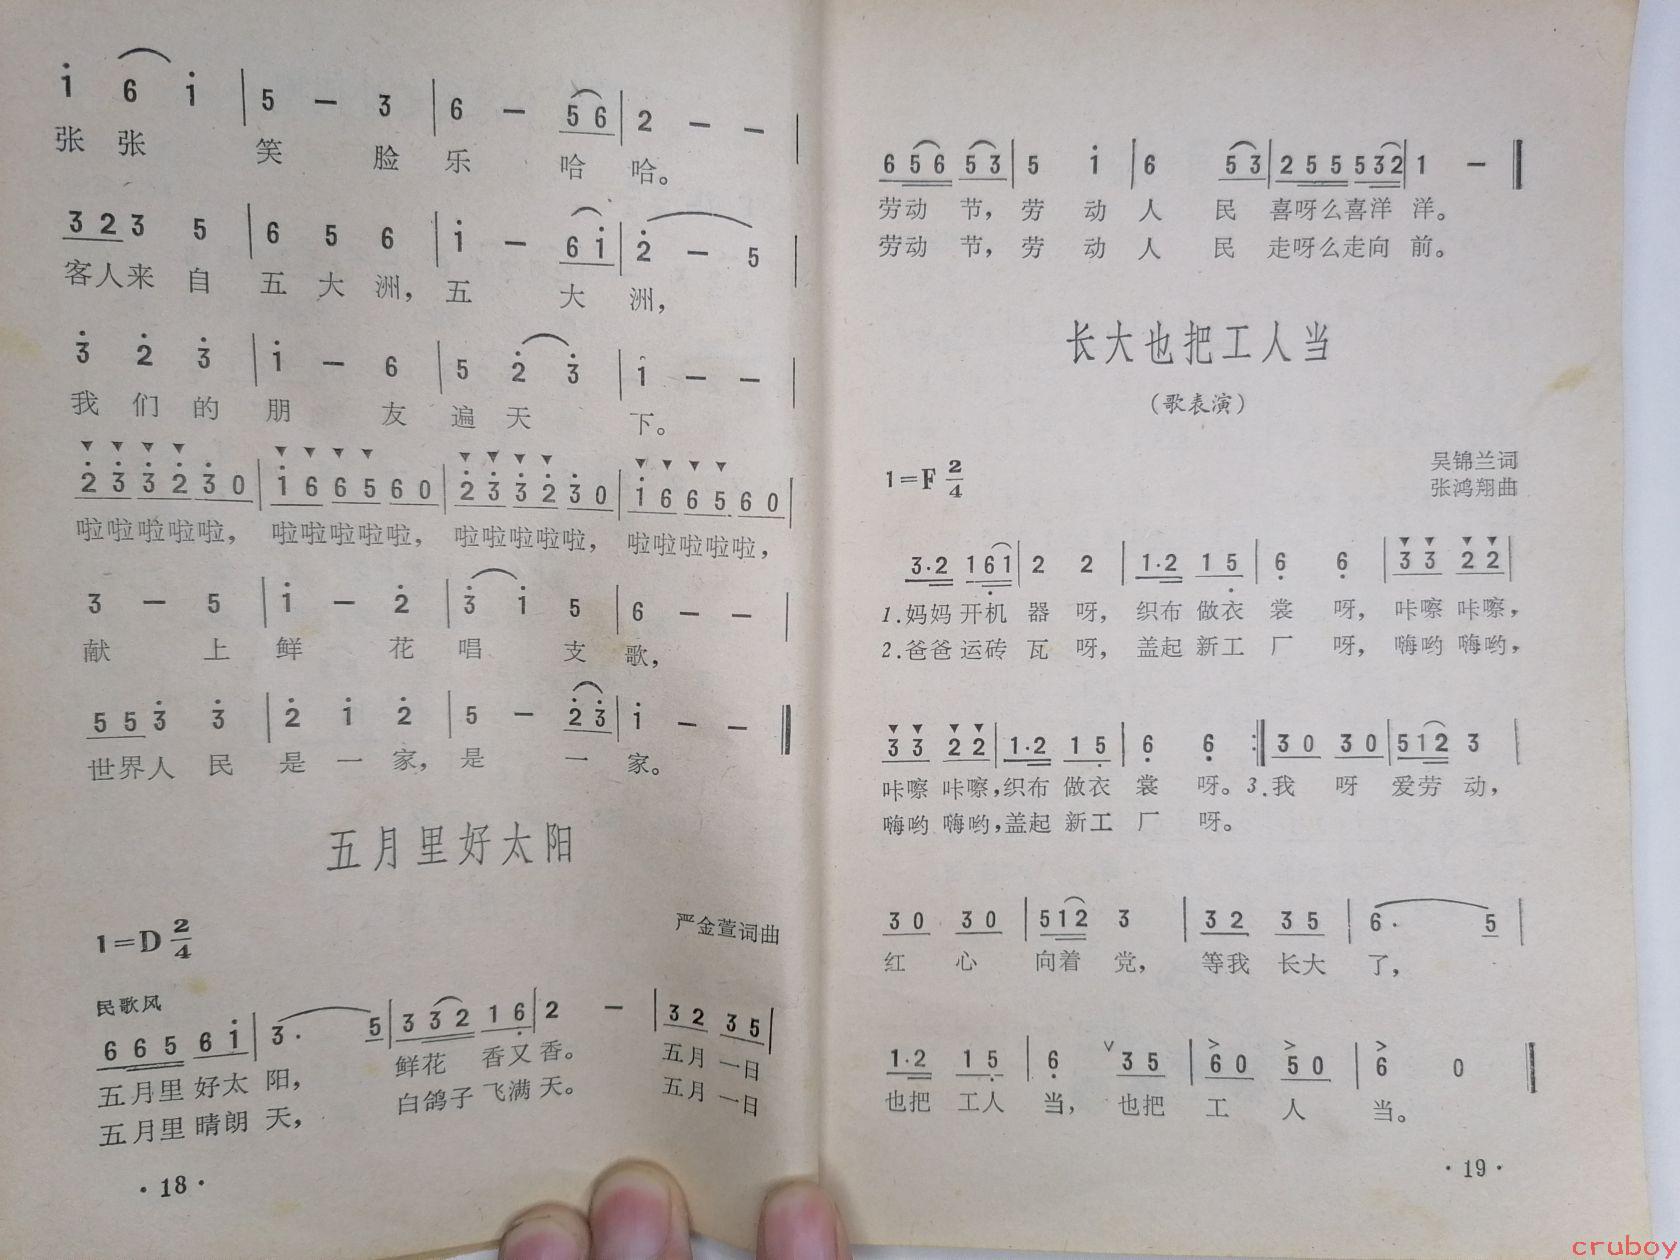 1 6 1 | 5 — 3 | 6 — 5 6 | 2 — — |
张 张 笑 脸 乐 哈 哈。
3 2 3 5 | 6 5 6 | 1 — 6 1 | 2 — 5 |
客人来 自 五 大 洲, 五 大 洲,
3 2 3 | 1 — 6 | 5 2 3 | 1 — — |
我 们 的 朋 友 遍 天 下。
2 3 3 2 3 0 | 1 6 6 5 6 0 | 2 3 3 2 3 0 | 1 6 6 5 6 0 |
啦啦啦啦啦, 啦啦啦啦啦, 啦啦啦啦啦, 啦啦啦啦啦,
3 — 5 | 1 — 2 | 3 1 5 | 6 — — |
献 上 鲜 花 唱 支 歌,
5 5 3 3 | 2 1 2 | 5 — 2 3 | 1 — — ‖
世界人 民 是 一 家, 是 一 家。
五月里好太阳
1=D 2/4
严金萱词曲
民歌风
6 6 5 6 1 | 3· 5 | 3 3 2 1 6 | 2 — | 3 2 3 5 |
五月里 好太 阳, 鲜花 香又 香。 五月 一日
五月里 晴朗 天, 白鸽子 飞满 天。 五月 一日
·18·
6 5 6 5 3 | 5 1 | 6 5 3 | 2 5 5 5 3 2 | 1 — ‖
劳动 节, 劳 动 人 民 喜呀么喜洋 洋。
劳动 节, 劳 动 人 民 走呀么走向 前。
长大也把工人当
(歌表演)
1=F 2/4
吴锦兰词
张鸿翔曲
3·2 1 6 1 | 2 2 | 1·2 1 5 | 6 6 | 3 3 2 2 |
1.妈妈 开机 器 呀, 织布 做衣 裳 呀, 咔嚓 咔嚓,
2.爸爸 运砖 瓦 呀, 盖起 新工 厂 呀, 嗨哟 嗨哟,
3 3 2 2 | 1·2 1 5 | 6 6 :‖ 3 0 3 0 | 5 1 2 3 |
咔嚓 咔嚓,织布 做衣 裳 呀。3.我 呀 爱劳 动,
嗨哟 嗨哟,盖起 新工 厂 呀。
3 0 3 0 | 5 1 2 3 | 3 2 3 5 | 6· 5 |
红 心 向着 党, 等我 长大 了,
1·2 1 5 | 6 ∨ 3 5 | 6 0 5 0 | 6 0 ‖
也把 工人 当, 也把 工 人 当。
·19·
cruboy